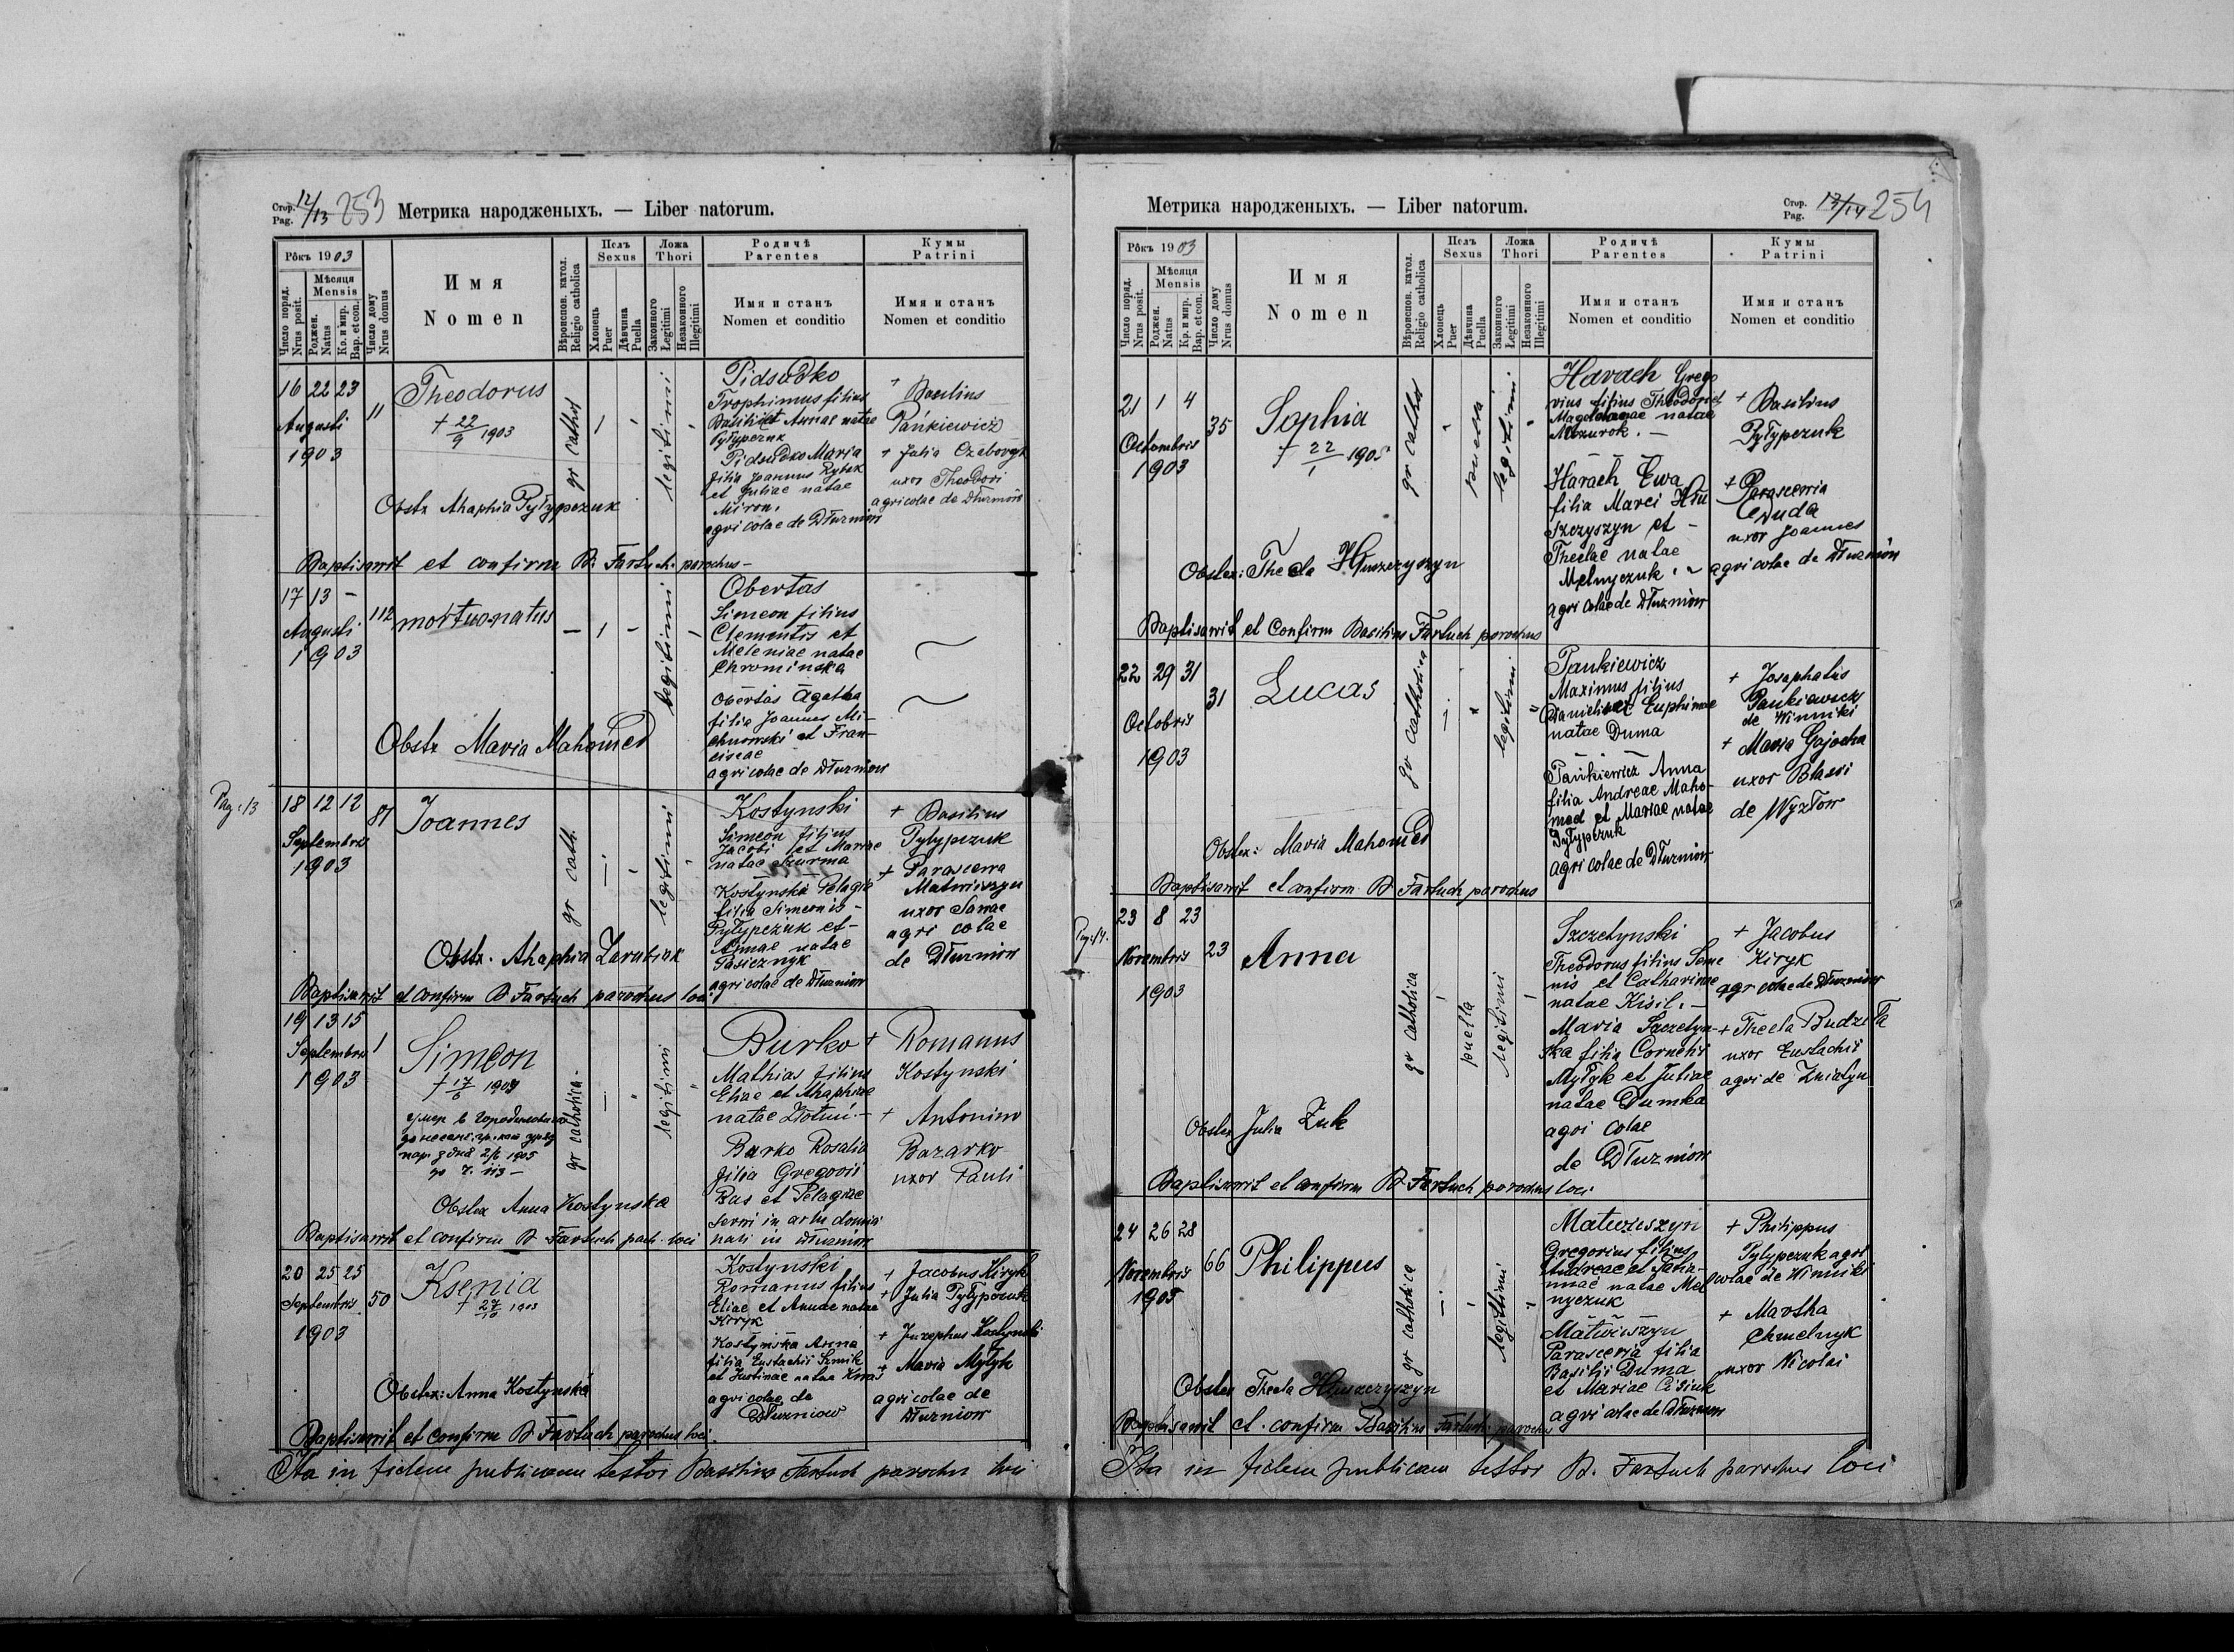 Стор.
Pag.
12/13 253
Метрика народженыхъ. — Liber natorum.
Рôкъ 1903
Число поряд.
Nrus posit.
Мѣсяця
Mensis
Роджен.
Natus
Кр. и мир.
Bap. et con.
Число дому
Nrus domus
Имя
Nomen
Вѣроиспов. катол.
Religio catholica
Полъ
Sexus
Хлопець
Puer
Дѣвчина
Puella
Ложа
Thori
Законного
Legitimi
Незаконного
Illegitimi
Родичѣ
Parentes
Имя и станъ
Nomen et conditio
Кумы
Patrini
Имя и станъ
Nomen et conditio
16 22 23
Augusti
1903
11
Theodorus
+ 22/9 1903
gr cathol
legitimi
Pidsudko
Trophimus filius
Basilii et Annae natae
Pyłypczuk
Pidsudko Maria
filia Joannis Rybak
et Juliae natae
Miron.
agricolae de Dłużniów
+ Basilius
Pańkiewicz
+ Julia
uxor Theodori
agricolae de Dłużniów
Obstr Ahaphia Pyłypczuk
Baptisavit et confirm B. Fartuch parochus
17 13 –
Augusti
1903
112
mortuonatus
legitimi
Obertas
Simeon filius
Clementis et
Meleniae natae
Chrominska
Obertas Agatha
filia Joannis Mi-
chnowski et Fran-
ciscae
agricolae de Dłużniow
Obstr Maria Mahomed
Pag: 13
18 12 12
Septembris
1903
87
Joannes
gr cath.
legitimi
Kostynski
Simeon filius
Jacobi et Mariae
natae Szurma
Kostynska Pelagia
filia Simeonis
Pyłypczuk et
Annae natae
Pasicznyk
agricolae de Dłużniów
+ Basilius
Pyłypczuk
+ Parascewa
Matwiiszyn
uxor Sawae
agricolae
de Dłużniów
Obstr. Ahaphia
Baptisavit et confirm B Fartuch parochus loci
19 13 15
Septembris
1903
1
Simeon
gr catholica
legitimi
Burko
Mathias filius
Eliae et Ahaphiae
natae
Burko Rosalia
filia Gregorii
Bas et Pelagiae
servi in
nati in Dłużniów
+ Romanus
Kostynski
+ Antonina
Bazarko
uxor Pauli
Obstex Anna Kostynska
Baptisavit et confirm B Fartuch par. loci
20 25 25
Septembris
1903
50
Ksenia
+ 27/10 1903
Kostynski
Romanus filius
Eliae et Annae natae
Kiryk
Kostynska Anna
filia Eustachii Szmik
et Justinae natae
agricolae de
Dłużniow
+ Jacobus Kiryk
+ Julia Pyłypczuk
+ Josephus Kostynski
+ Maria Mytyk
agricolae de
Dłużniow
Obstex: Anna Kostynska
Baptisavit et confirm B Fartuch parochus loci.
Ita in fidem publicam testor Basilius Fartuch parochus loci
Метрика народженыхъ. — Liber natorum.
Стор.
Pag.
13/14 254
Рôкъ 1903
Число поряд.
Nrus posit.
Мѣсяця
Mensis
Роджен.
Natus
Кр. и мир.
Bap. et con.
Число дому
Nrus domus
Имя
Nomen
Вѣроиспов. катол.
Religio catholica
Полъ
Sexus
Хлопець
Puer
Дѣвчина
Puella
Ложа
Thori
Законного
Legitimi
Незаконного
Illegitimi
Родичѣ
Parentes
Имя и станъ
Nomen et conditio
Кумы
Patrini
Имя и станъ
Nomen et conditio
21 1 4
Octombris
1903
35
Sophia
+ 22/1 1905
gr cathol
puella
legitimi
Harach Grego
rius filius Theodori et
Magdalenae natae
Mazurok. –
Harach Ewa
filia Marci Hlu
szczyszyn et –
Theclae natae
Melnyczuk
agricolae de Dłużniow
+ Basilius
Pyłypczuk
+ Parascewia
Duda
uxor Joannes
agricolae de Dłużniów
Obstex: Thecla
Baptisavit et confirm Basilius Fartuch parochus
22 29 31
Octobris
1903
31
Lucas
gr catholica
legitimi
Pankiewicz
Maximus filius
Danielis et Euphimae
natae Duma
Pańkiewicz Anna
filia Andreae Maho-
med et Mariae natae
Pyłypczuk
agricolae de Dłużniow
+ Josaphatus
Pankiewicz
de Winniki
+ Maria Gajocha
uxor Blasii
de Wyżłów
Obstex: Maria Mahomed
Baptisavit et confirm B Fartuch parochus
Pag: 14.
23 8 23
Novembris
1903
23
Anna
gr catholica
puella
legitimi
Szczetynski
Theodorus filius Seme
nis et Catharinae
natae Kisil. –
Maria Szczetyn-
ska filia Cornelii
Mytyk et Juliae
natae Dumka
agricolae
de Dłużniow
+ Jacobus
Kiryk
agricolae de Dłużniów
+ Thecla Budziła
uxor Eustachii
agri de Żniatyn
Obstex Julia Żuk
Baptisavit et confirm B Fartuch parochus loci
24 26 28
Novembris
1903
66
Philippus
gr catholica
legitimi
Matwiiszyn
Gregorius filius
Andreae et Tatia-
nnae natae Mel
nyczuk
Matwiiszyn
Parascevia filia
Basilii Duma
et Mariae
agricolae de Dłużniow
+ Philippus
Pyłypczuk agri
colae de Winniki
+ Martha
Chmelnyk
uxor Nicolai
Obstex Thecla
Baptisavit et confirm Basilius Fartuch parochus
Ita in fidem publicam testor B. Fartuch parochus loci